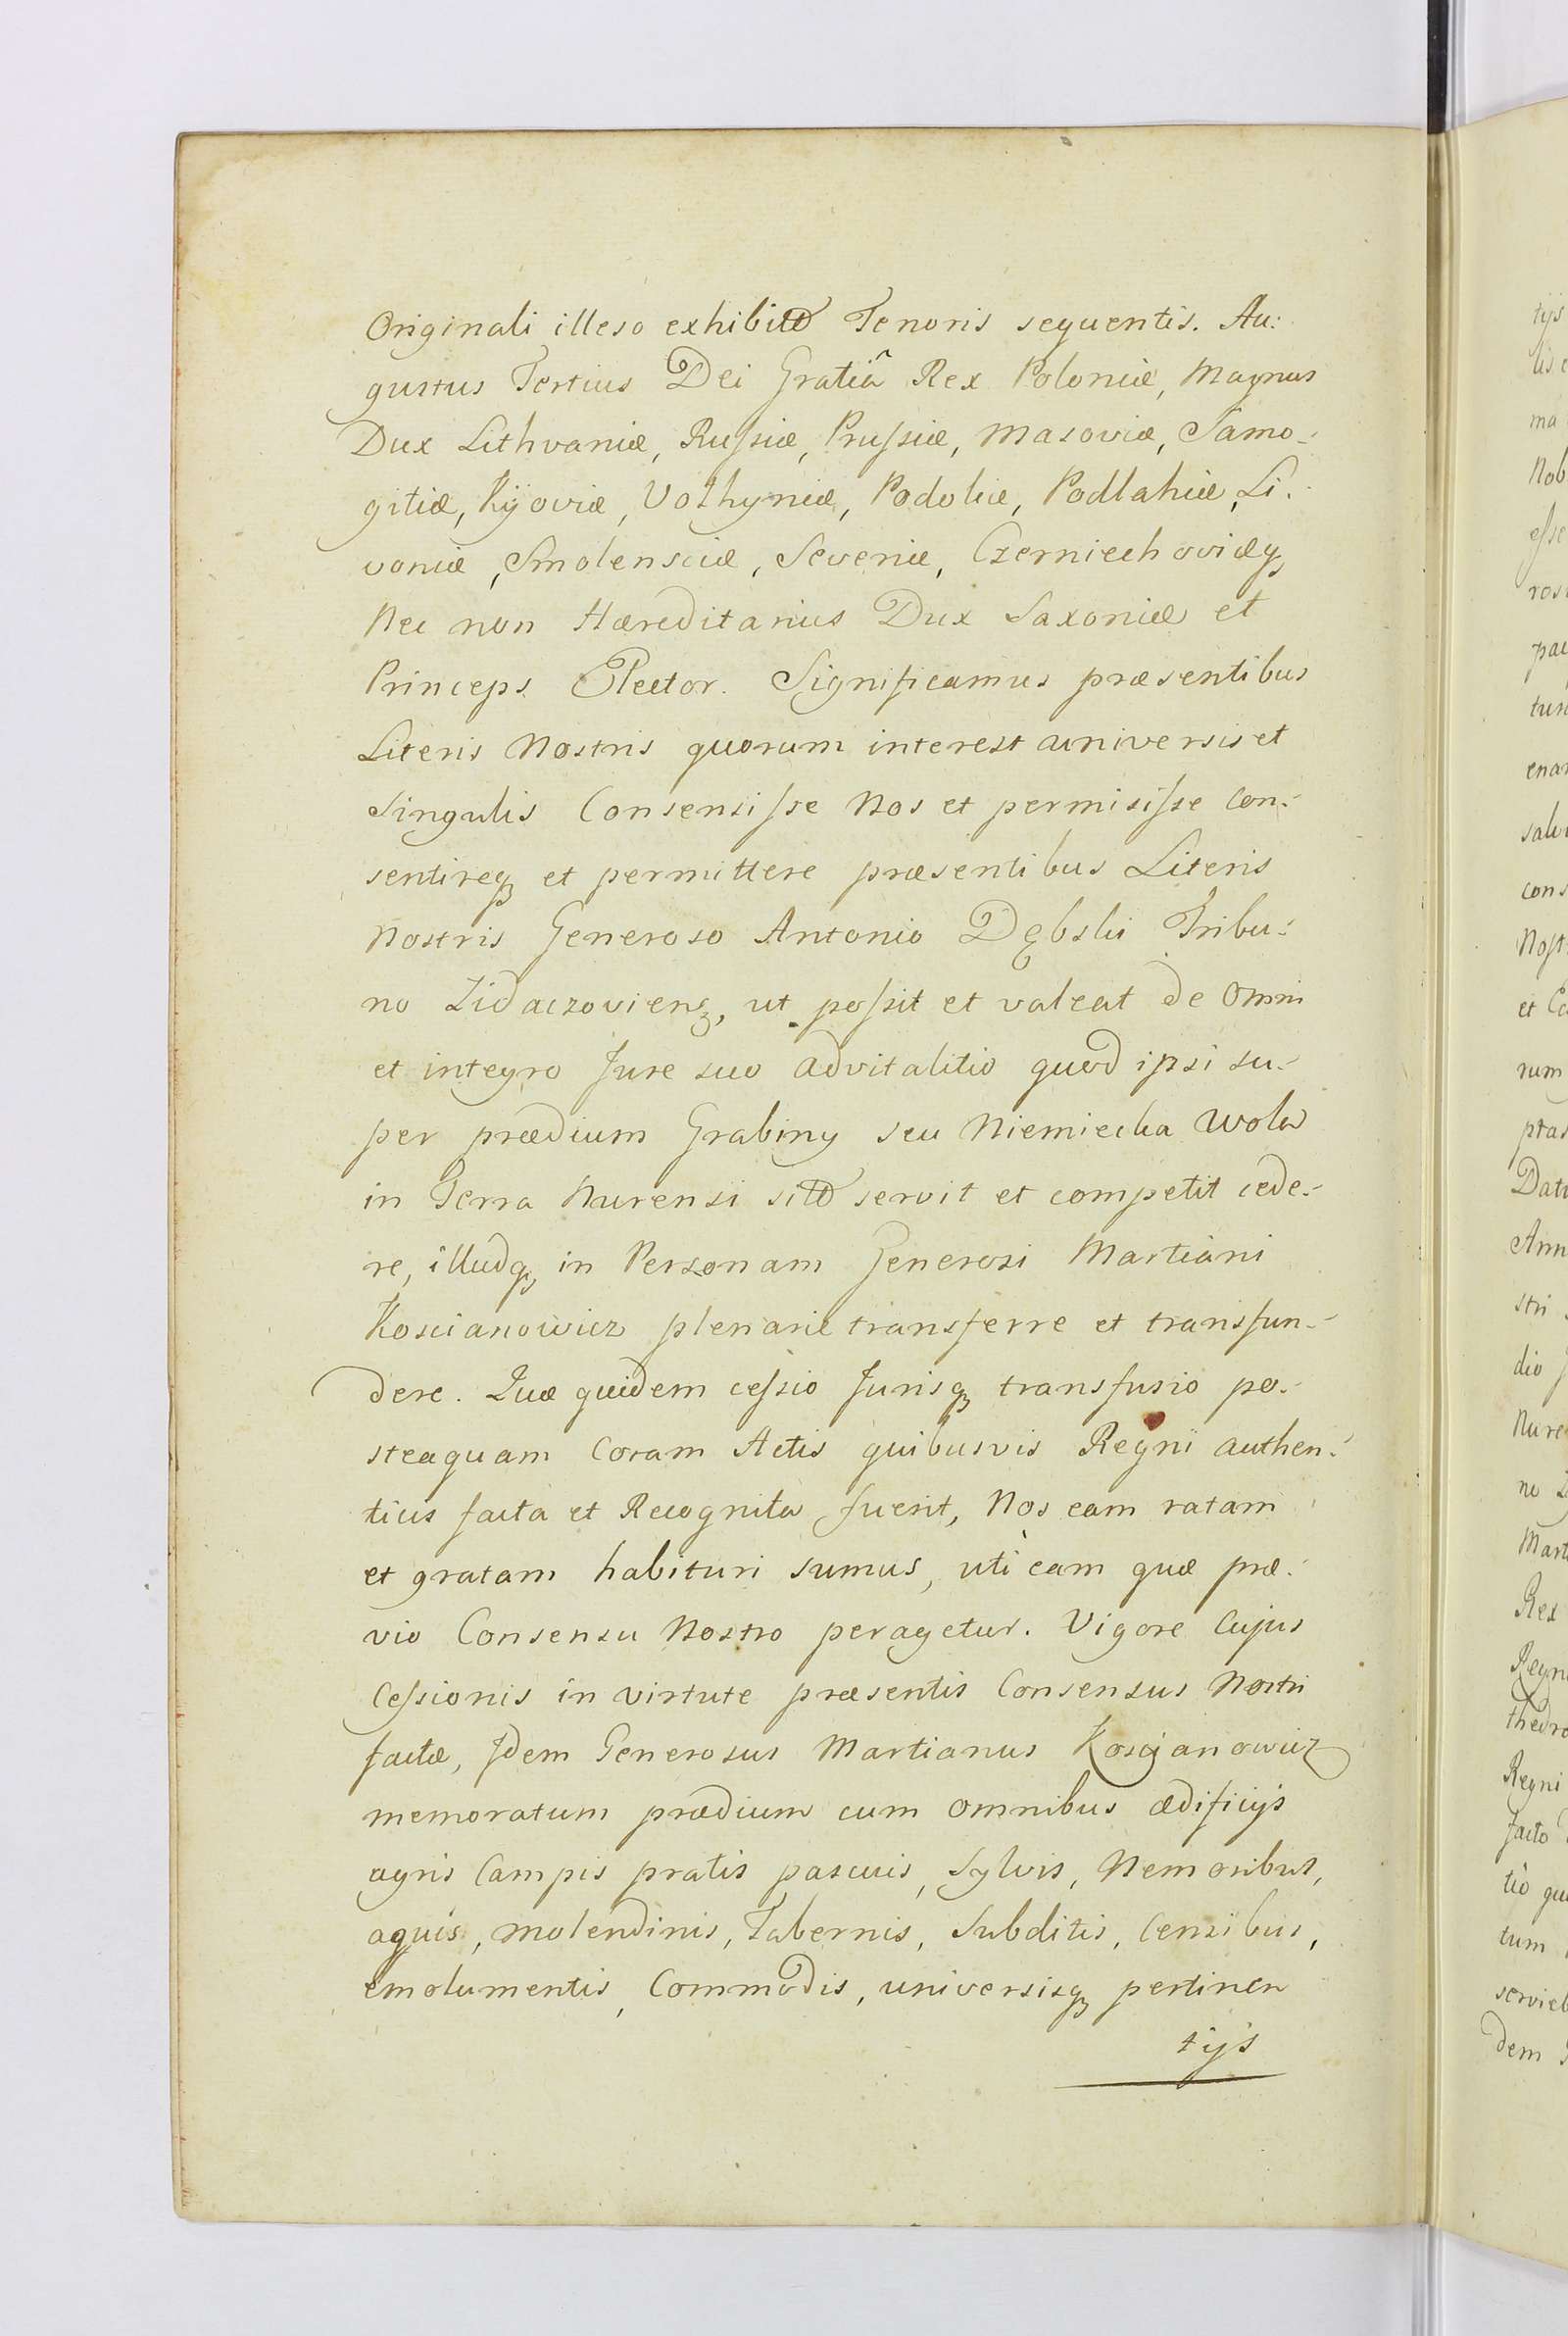 Originali illeso exhibito Tenoris sequentis. Au:
gustus Tertius Dei Gratiâ Rex Poloniæ, Magnus
Dux Lithvaniæ, Ruſsiæ, Pruſsiæ, Masoviæ, Samo-
gitiæ, Kÿoviæ, Volhyniæ, Podoliæ, Podlahiæ, Li-
voniæ, Smolensciæ, Severiæ, Czerniechoviæq,
Nec non Hæreditarius Dux Saxoniæ et
Princeps Elector. Significamus præsentibus
Literis Nostris quorum interest universis et
Singulis Consensiſse Nos et permisiſse con-
sentireq et permittere præsentibus Literis
Nostris Generoso Antonio Dębski Tribu-
no Zidaczoviens, ut poſsit et valeat de Omni
et integro Jure suo advitalitio quod ipsi su-
per prædium Grabiny seu Niemiecka Wola
in Terra Nurensi sito servit et competit cede-
re, illudq, in Personam Generosi Martiani
Koscianowicz plenarie transferre et transfun-
dere. Quæ quidem ceſsio Jurisq transfusio po-
steaquam Coram Actis quibusvis Regni authen-
ticis facta et Recognita fuerit, Nos eam ratam
et gratam habituri sumus, uti eam quæ præ-
vio Consensu Nostro peragetur. Vigore Cujus
Ceſsionis in virtute præsentis Consensus Nostri
factæ, Jdem Generosus Martianus Koscjanowicz
memoratum prædium cum omnibus ædificÿs
agris Campis pratis pascuis, Sylvis, Nemoribus,
aquis, molendinis, Tabernis, Subditis, Censibus,
emolumentis, Commodis, universisq pertinen
tÿs